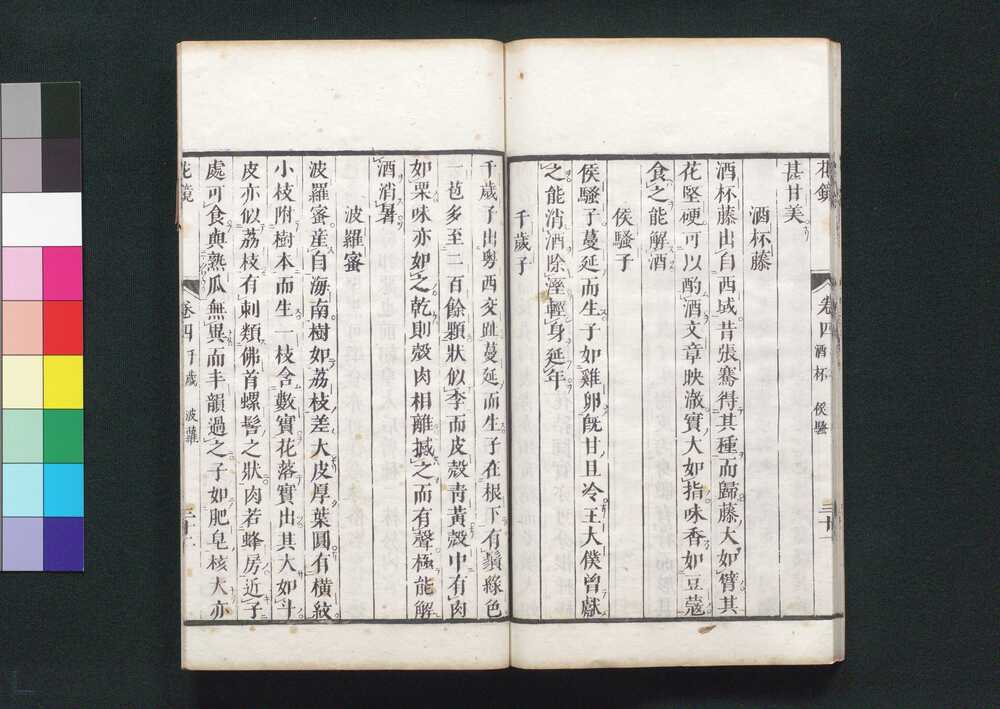 花鏡 卷四 酒杯 侯騷 三十一
甚甘美
酒杯藤
酒杯藤出自西域昔張騫得其種而歸藤大如臂其
花堅硬可以酌酒文章映澈實大如指味香如豆蔻
食之能解酒
侯騷子
侯騷子蔓延而生子如雞卵旣甘且冷王大僕曾獻
之能消酒除溼輕身延年
千歲子
千歲子出粤西交趾蔓延而生子在根下有鬚綠色
一苞多至二百餘顆狀似李而皮殼靑黃殼中有肉
如栗味亦如之乾則殼肉相離撼之而有聲極能解
酒消暑
波羅蜜
波羅蜜產自海南樹如荔枝差大皮厚葉圓有橫紋
小枝附樹本而生一枝含數實花落實出其大如斗
皮亦似荔枝有刺類佛首螺髻之狀肉若蜂房近子
處可食與熟瓜無異而丰韻過之子如肥皂核大亦
花鏡 卷四 千歲 波羅